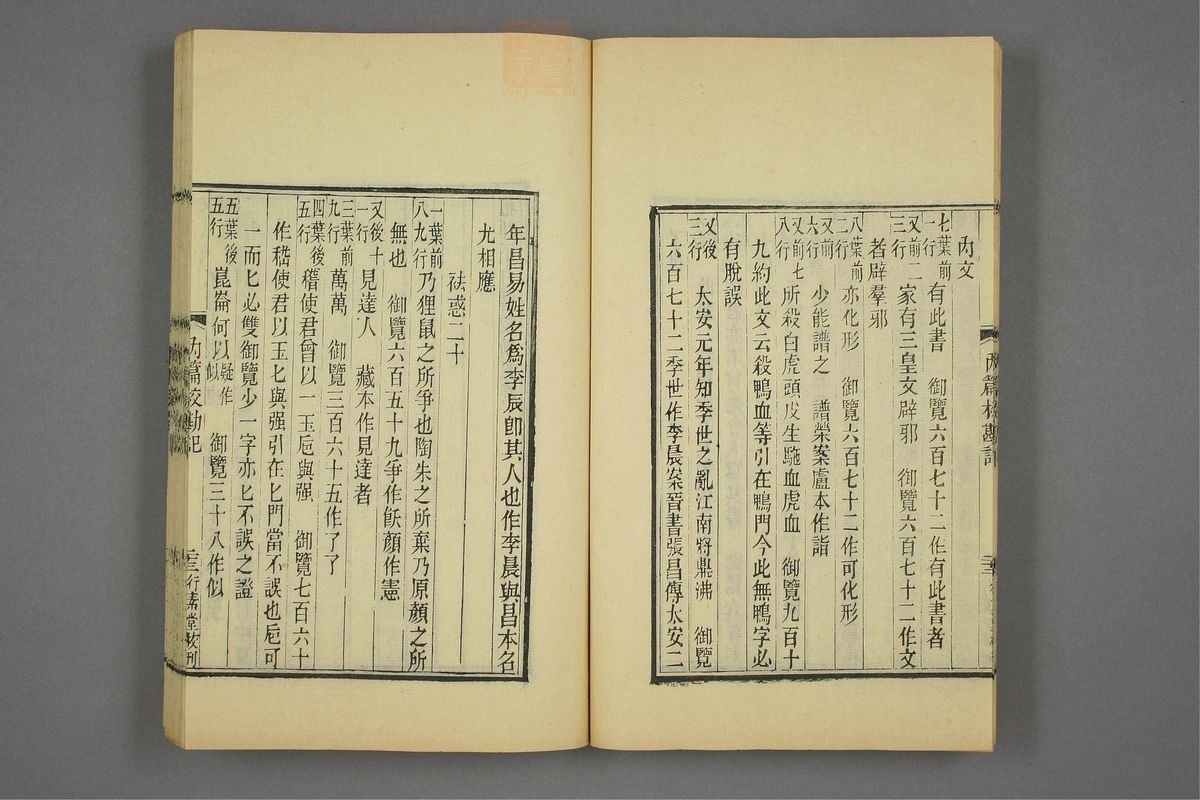 內文
七葉前一行有此書　御覽六百七十二作有此書者
又前二三行家有三皇文辟邪　御覽六百七十二作文
者辟羣邪
八葉前二行亦化形　御覽六百七十二作可化形
又前六行少能譜之　譜榮案盧本作詣
又前七八行所殺白虎頭皮生駞血虎血　御覽九百十
九約此文云殺鴨血等引在鴨門今此無鴨字必
有脫誤
又後三行太安元年知季世之亂江南將鼎沸　御覽
六百七十二季世作李晨案晉書張昌傳太安二
丙篇校勘記
年昌易姓名爲李辰卽其人也作李晨與昌本名
尤相應
袪惑二十
一葉前八九行乃狸鼠之所爭也陶朱之所棄乃原顏之所
無也　御覽六百五十九爭作飫顏作憲
又後十一行見達人　藏本作見達者
三葉前九行萬萬　御覽三百六十五作了了
四葉後五行稽使君曾以一玉卮與强　御覽七百六十
作嵇使君以玉匕與强引在匕門當不誤也卮可
一而匕必雙御覽少一字亦匕不誤之證
五葉後五行崑崙何以疑作似　御覽三十八作似
內篇校勘記
二三
行素堂校刊